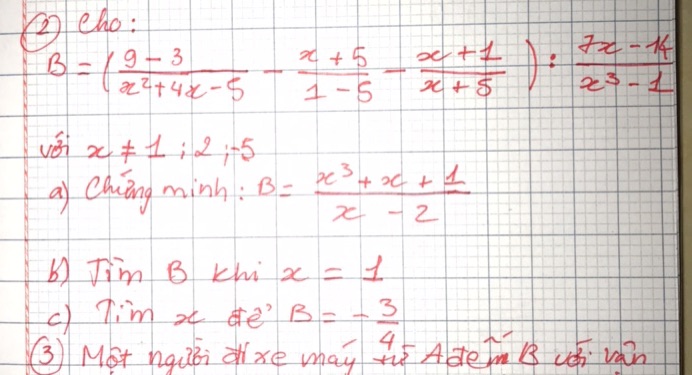 ② Cho:
B = ( (9 - 3)/(x² + 4x - 5) - (x + 5)/(1 - 5) - (x + 1)/(x + 5) ) : (7x - 14)/(x³ - 1)
với x ≠ 1 ; 2 ; -5
a) Chứng minh : B = (x³ + x + 1)/(x - 2)
b) Tìm B khi x = 1
c) Tìm x để B = - 3/4
③ Một người đi xe máy từ A đến B với vận